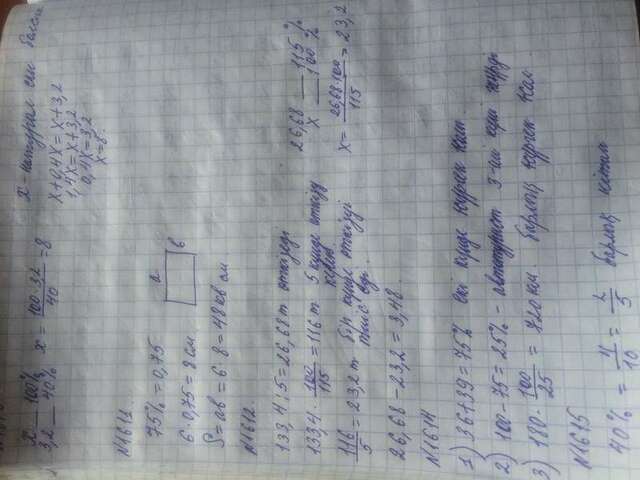 x — 100%
3,2 — 40%
x = 100·3,2/40 = 8
x - натурал сан болса
x+0,4x = x+3,2
1,4x = x+3,2
0,4x = 3,2
x = 8.
№1611.
75% = 0,75
6·0,75 = 8 см
a
в
S = ав = 6·8 = 48 кв см.
№1612.
133,4:5 = 26,68 т өткізеді
133,4· 100/115 = 116 т 5 күнде өткізу
керек
116/5 = 23,2 т бір күнде өткізуі
тиіс еді.
26,68 — 115%
x — 100%
x = 26,68·100/115 = 23,2
26,68 – 23,2 = 3,48.
№1614
1) 36+39 = 75% екі күнде жүрген жол.
2) 100-75 = 25% - автотурист 3-ші күні жүрді
3) 180· 100/25 = 720 км. барлық жүрген жол
№1615
40% = 4/10 = 2/5 барлық кітап